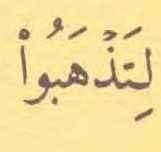 لِتَذْهَبُواْ